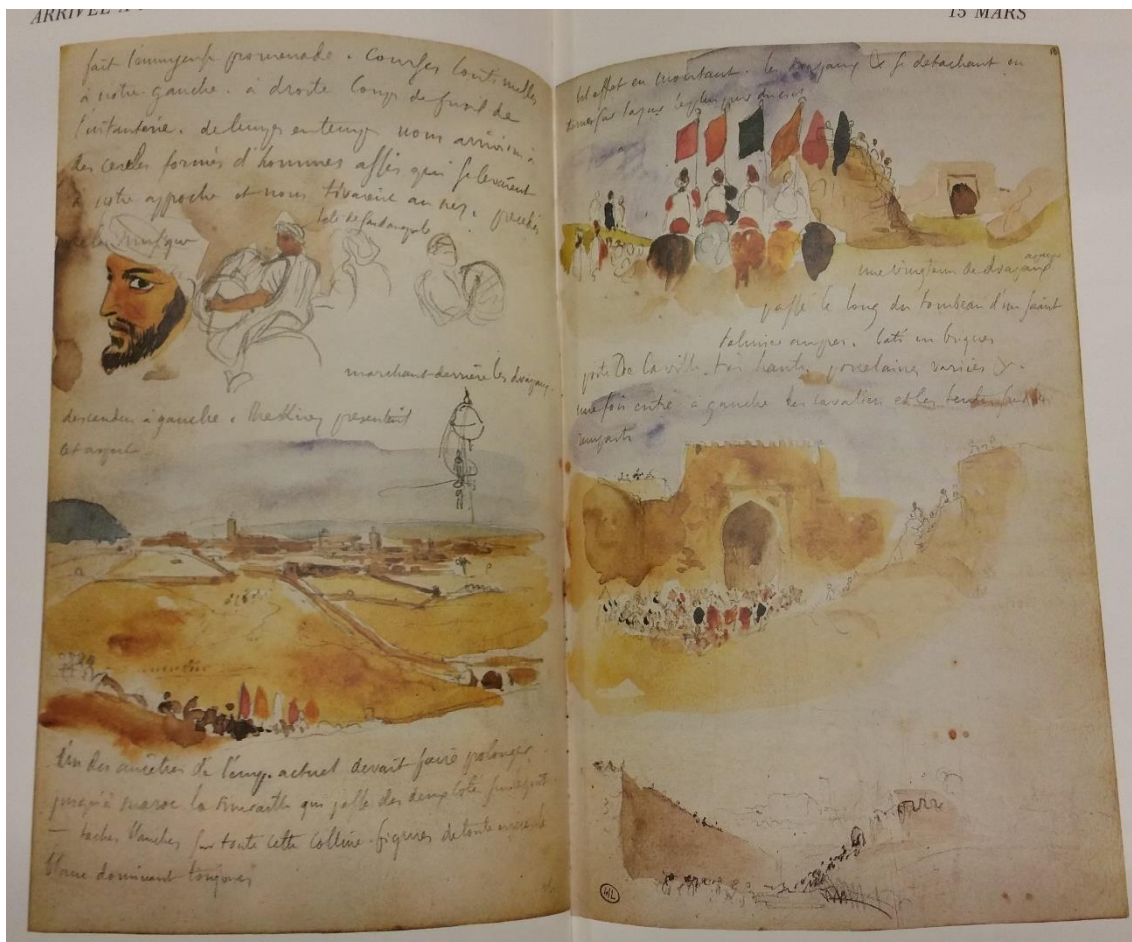 ARRIVÉE À
15 MARS
fait l'ennuyeuse promenade. Courses continuelles
à notre gauche. à droite coups de fusil de
l'infanterie. de temps en temps nous arrivions à
des cercles formés d'hommes assis qui se levaient
à notre approche et nous tiraient au nez.
marchant derrière les drapeaux
descendus à gauche. présentait
cet aspect
Un des ancêtres de l'emp. actuel devait faire prolonger
jusqu'à maroc la muraille qui passe des deux côtés
— taches blanches sur toute cette colline. figures de toute
blanc dominant toujours
bel effet en montant. les drapeaux &. se détachant en
sur l'azur le plus pur du ciel
une vingtaine de drapeaux
passé le long du tombeau d'un saint
palmier auprès. bâti en briques
porte de la ville très haute, porcelaines variées &.
une fois entré à gauche les cavaliers et les tentes sur les
remparts
ML